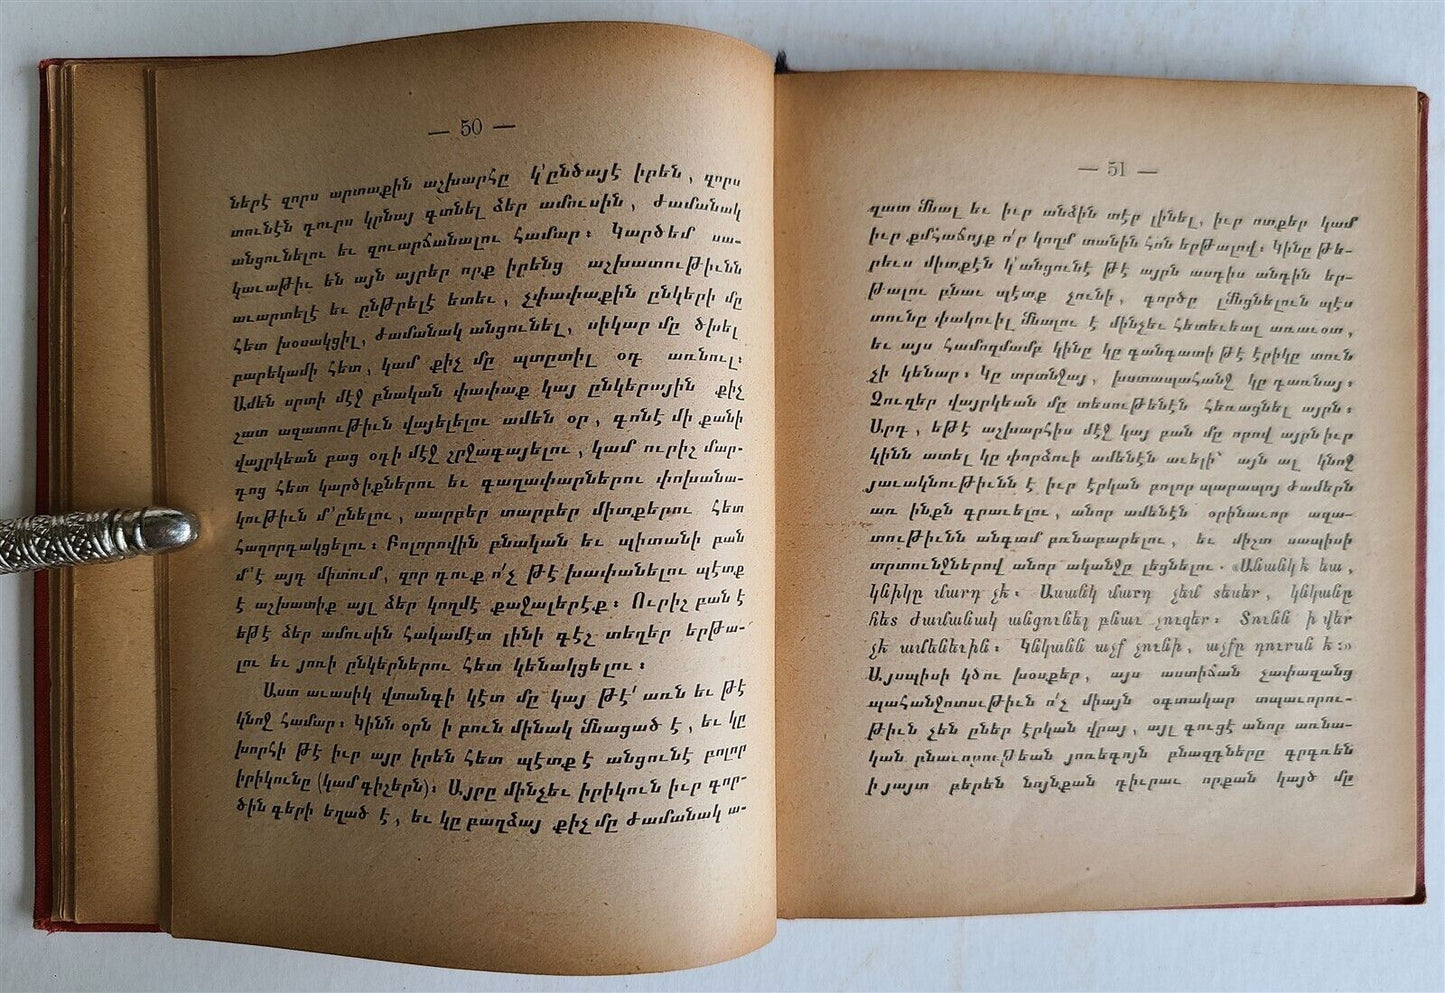 — 50 —
ներէ զորս արտաքին աշխարհը կ՚ընծայէ իրեն, զորս
տունէն դուրս կրնայ գտնել ձեր ամուսին, ժամանակ
անցունելու եւ զուարճանալու համար։ Կարծեմ սա-
կաւաթիւ են այն այրեր որք իրենց աշխատութիւնն
աւարտելէ եւ ընթրելէ ետեւ, չփափաքին ընկերի մը
հետ խօսակցիլ, ժամանակ անցունել, սիկար մը ծխել
բարեկամի հետ, կամ քիչ մը պտըտիլ օդ առնուլ։
Ամեն սրտի մէջ բնական փափաք կայ ընկերային քիչ
շատ ազատութիւն վայելելու ամեն օր, գոնէ մի քանի
վայրկեան բաց օդի մէջ շրջագայելու, կամ ուրիշ մար-
դոց հետ կարծիքներու եւ գաղափարներու փոխանա-
կութիւն մ՚ընելու, տարբեր տարբեր միտքերու հետ
հաղորդակցելու։ Բոլորովին բնական եւ պիտանի բան
մ՚է այդ միտում, զոր դուք ո՛չ թէ խափանելու պէտք
է աշխատիք այլ ձեր կողմէ քաջալերէք։ Ուրիշ բան է
եթէ ձեր ամուսին հակամէտ լինի գէշ տեղեր երթա-
լու եւ յոռի ընկերներու հետ կենակցելու։
Աստ աւասիկ վտանգի կէտ մը կայ թէ՛ առն եւ թէ
կնոջ համար։ Կինն օրն ի բուն մինակ մնացած է, եւ կը
խորհի թէ իւր այր իրեն հետ պէտք է անցունէ բոլոր
իրիկունը (կամ գիշերն)։ Այրը մինչեւ իրիկուն իւր գոր-
ծին գերի եղած է, եւ կը բաղձայ քիչ մը ժամանակ ա-
— 51 —
զատ մնալ եւ իւր անձին տէր լինել, իւր ոտքեր կամ
իւր քմհաճոյք ո՛ր կողմ տանին հոն երթալով։ Կինը թե-
րեւս միտքէն կ՚անցունէ թէ այրն ասդիս անդին եր-
թալու բնաւ պէտք չունի, գործը լմնցնելուն պէս
տունը փակուիլ մնալու է մինչեւ հետեւեալ առաւօտ,
եւ այս համոզմամբ կինը կը գանգատի թէ էրիկը տուն
չի կենար։ Կը տրտնջայ, խստապահանջ կը դառնայ։
Չուզեր վայրկեան մը տեսութենէն հեռացնել այրն։
Արդ, եթէ աշխարհիս մէջ կայ բան մը որով այրն իւր
կինն ատել կը փորձուի ամենէն աւելի՝ այն ալ կնոջ
յաւակնութիւնն է իւր էրկան բոլոր պարապոյ ժամերն
առ ինքն գրաւելու, անոր ամենէն օրինաւոր ազա-
տութիւնն անգամ բռնաբարելու, եւ միշտ սապիսի
տրտունջներով անոր ականջը լեցնելու. «Անանկ է եա,
կնիկը մարդ չէ։ Ասանկ մարդ չեմ տեսեր, կնկանը
հետ ժամանակ անցունել բնաւ չուզեր։ Տունն ի վեր
չէ ամենեւին։ Կնկանն աչք չունի, աչքը դուրսն է։»
Այսպիսի կծու խօսքեր, այս աստիճան չափազանց
պահանջոտութիւն ո՛չ միայն օգտակար տպաւորու-
թիւն չեն ըներ էրկան վրայ, այլ գուցէ անոր առնա-
կան բնաւորութեան յոռեգոյն բնազդները գրգռեն
ի յայտ բերեն նոյնքան դիւրաւ որքան կայծ մը